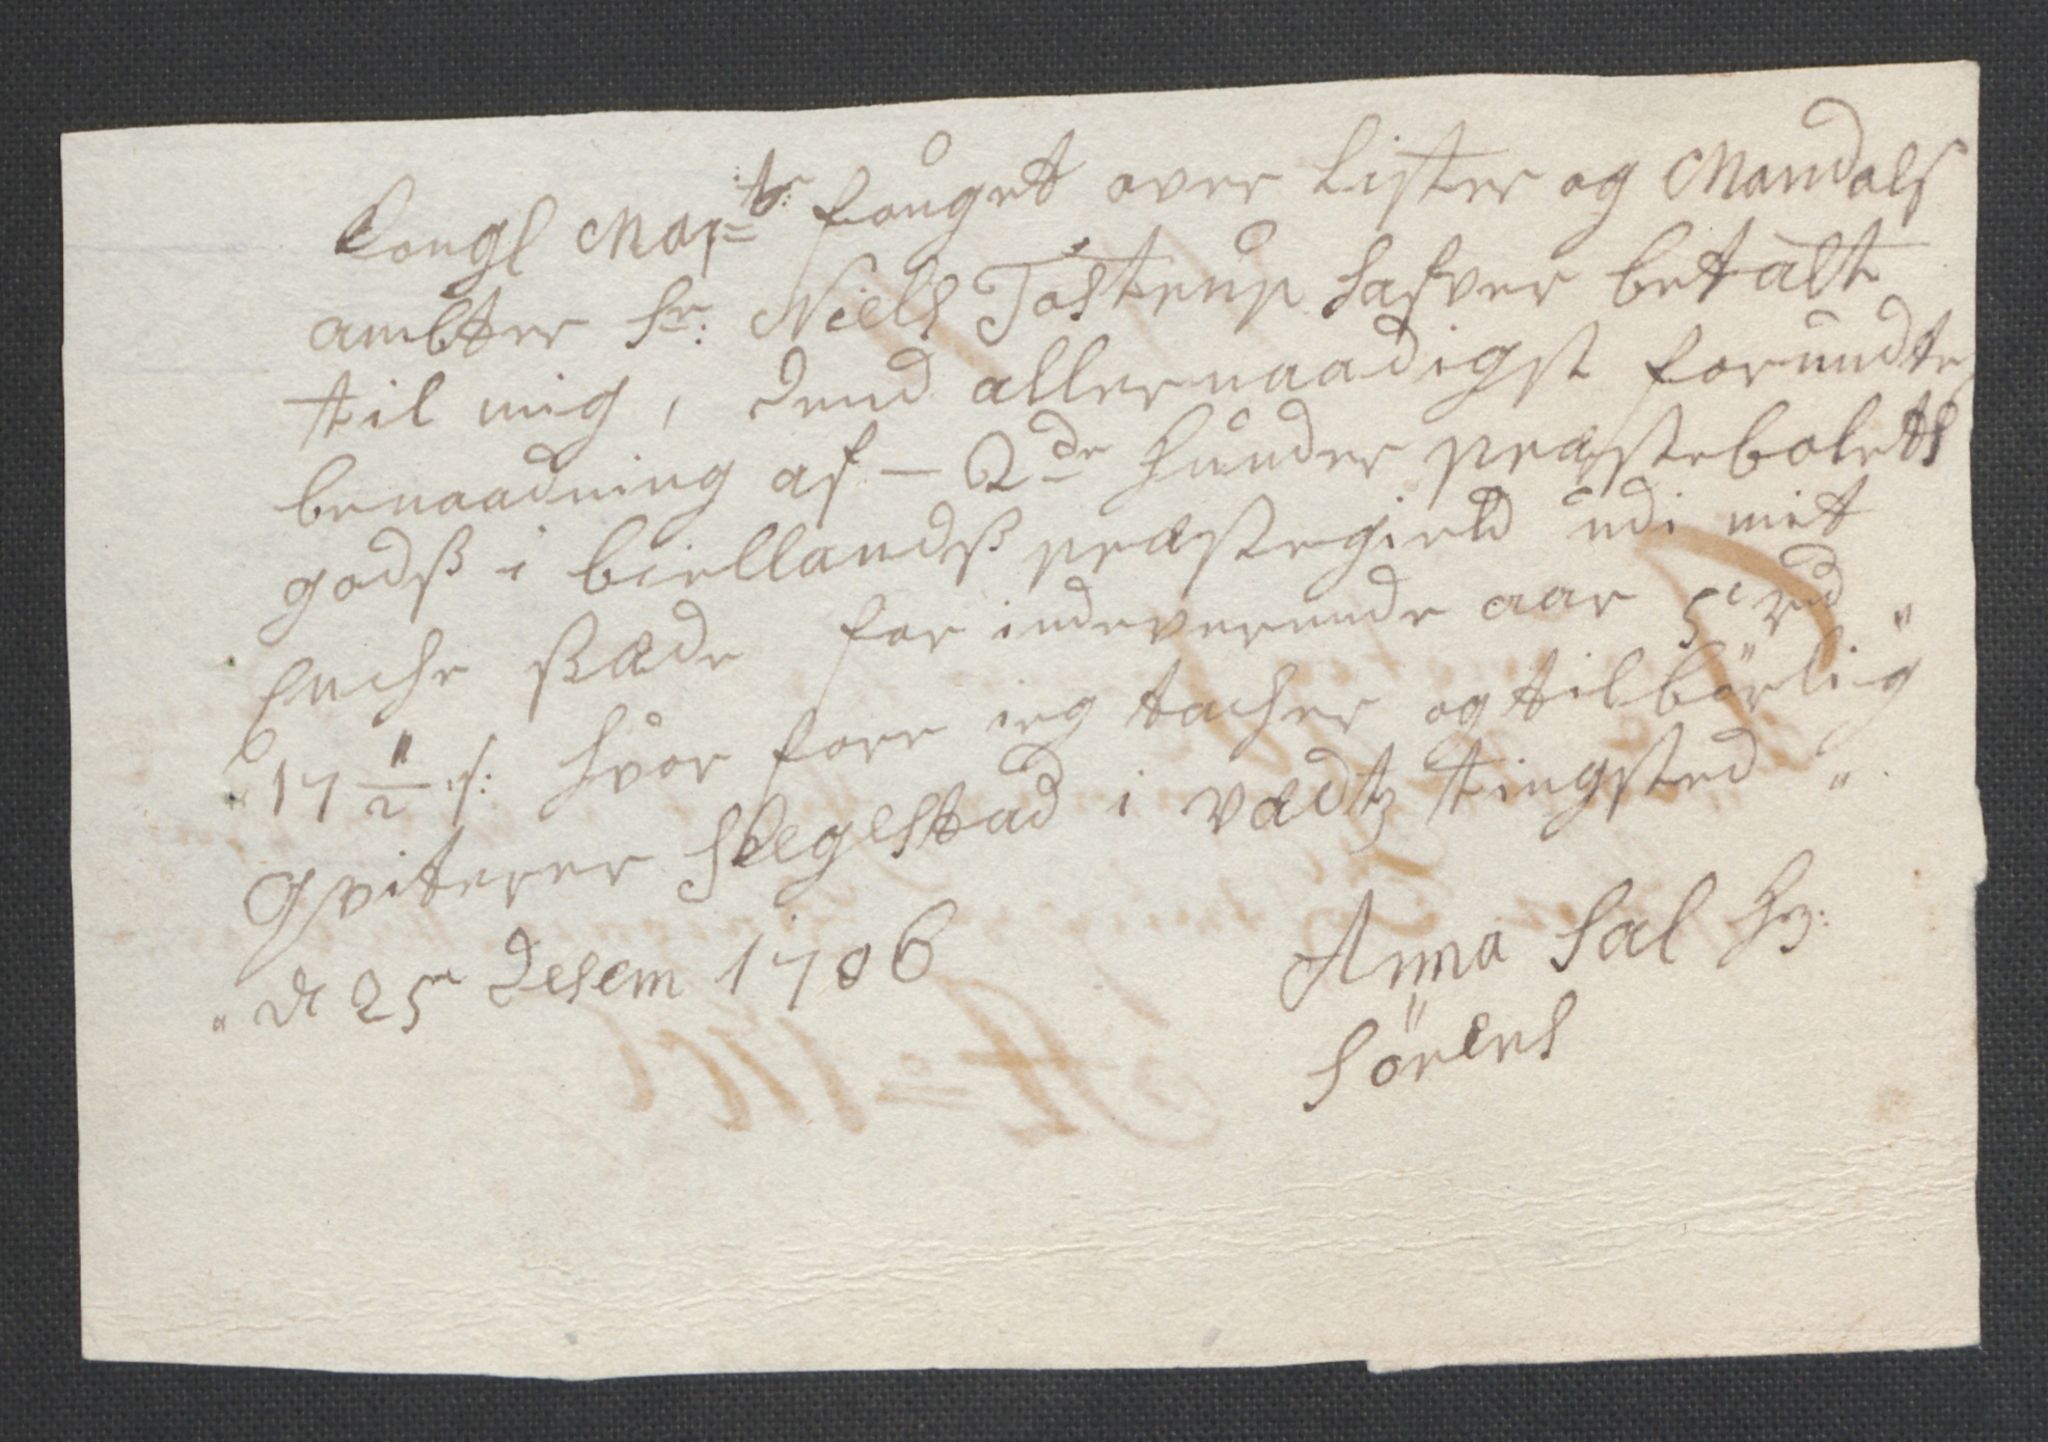 Kongl Maytz: fouget over Lister og Mandals
ambter Sr: Niels Tostrup hafver betalt
til mig, dend allernaadigst forundte
benaadning af – 2de hunder præstebolets
godß i biellandß præstegield udi mit
Enche sæde for indeverende aar 5 rd
17 1/2 s: hvor fore ieg tacher og tilbörlig
Qviterer Skegestad i tingsted
d 25 desem 1706
Anna Sal Hr:
Sörens
At 1706